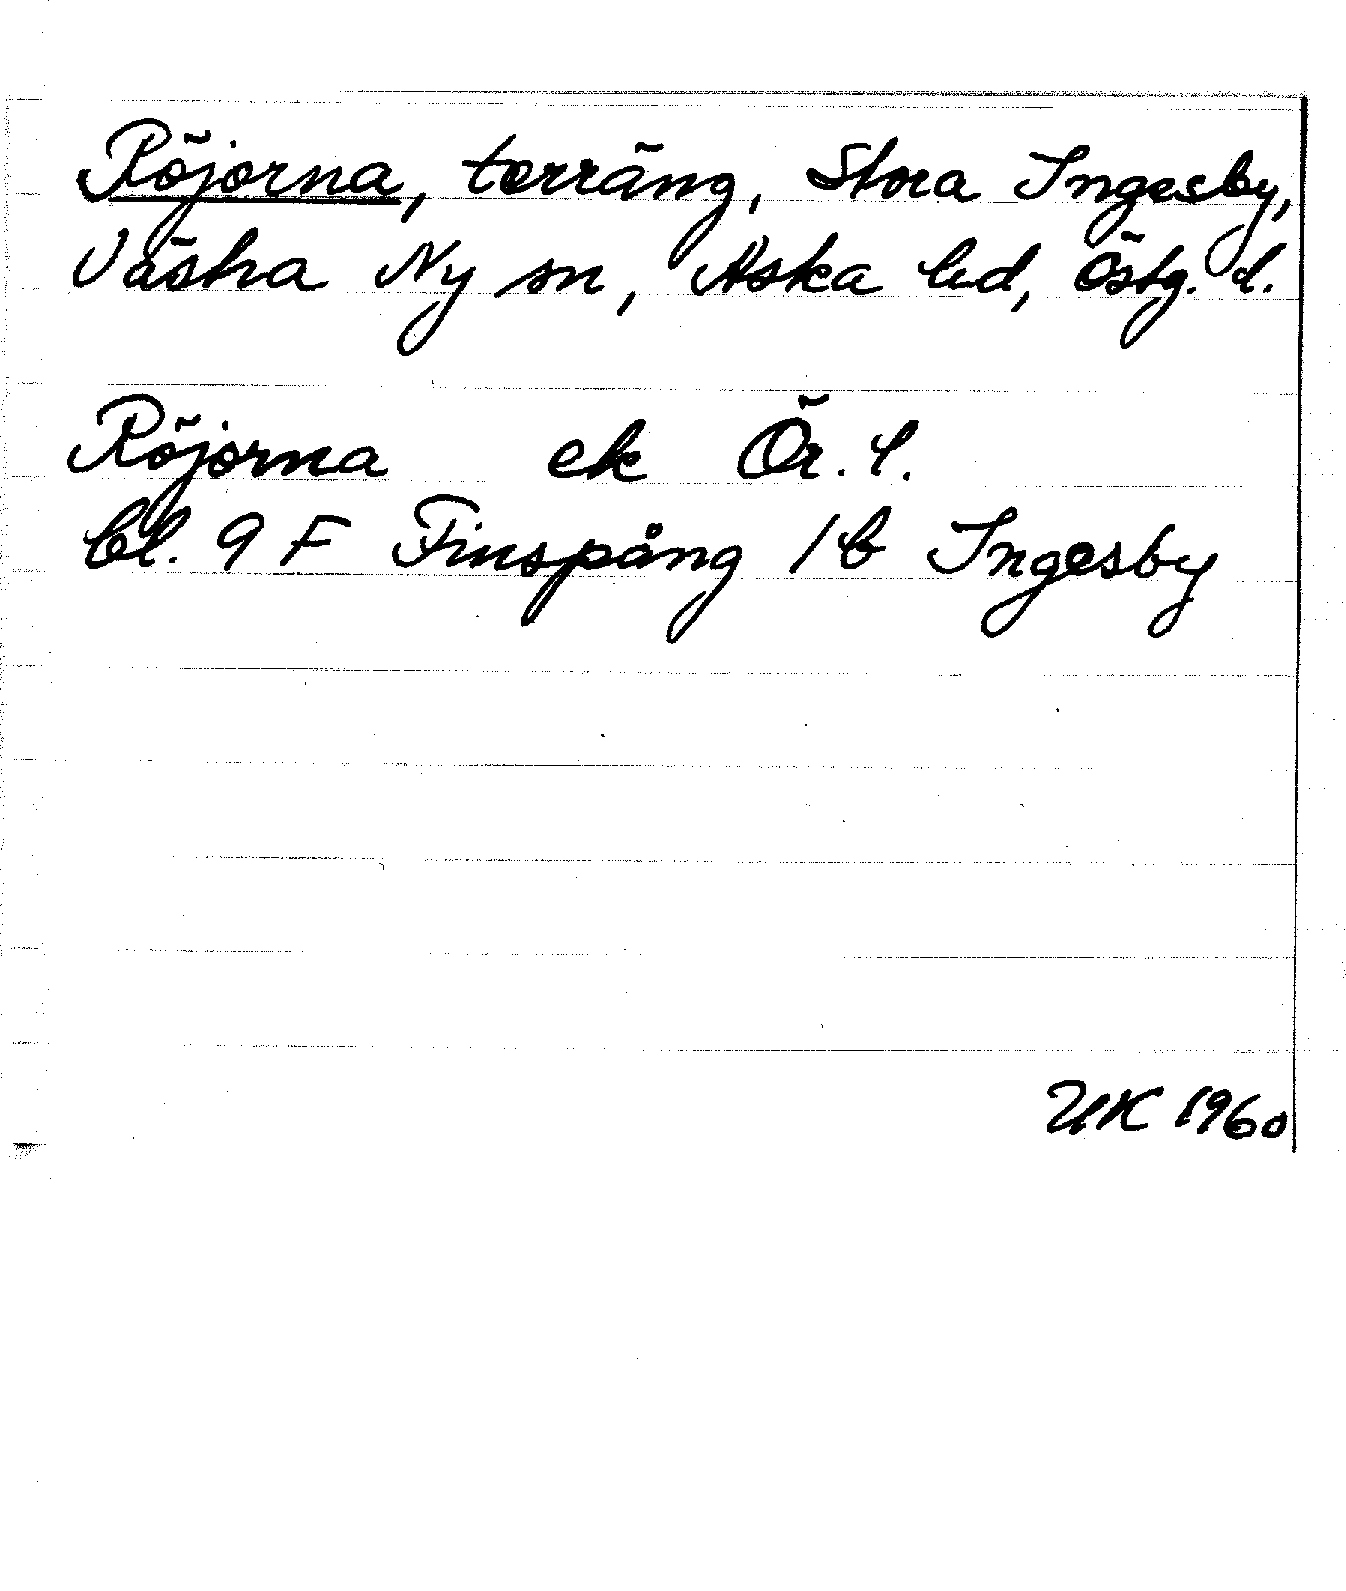 Röjorna, terräng, Stora Ingesby,
Västra Ny sn, Aska hd, Östg. l.
Röjorna ek Ör. l.
bl. 9 F Finspång 1b Ingesby
UK 1960